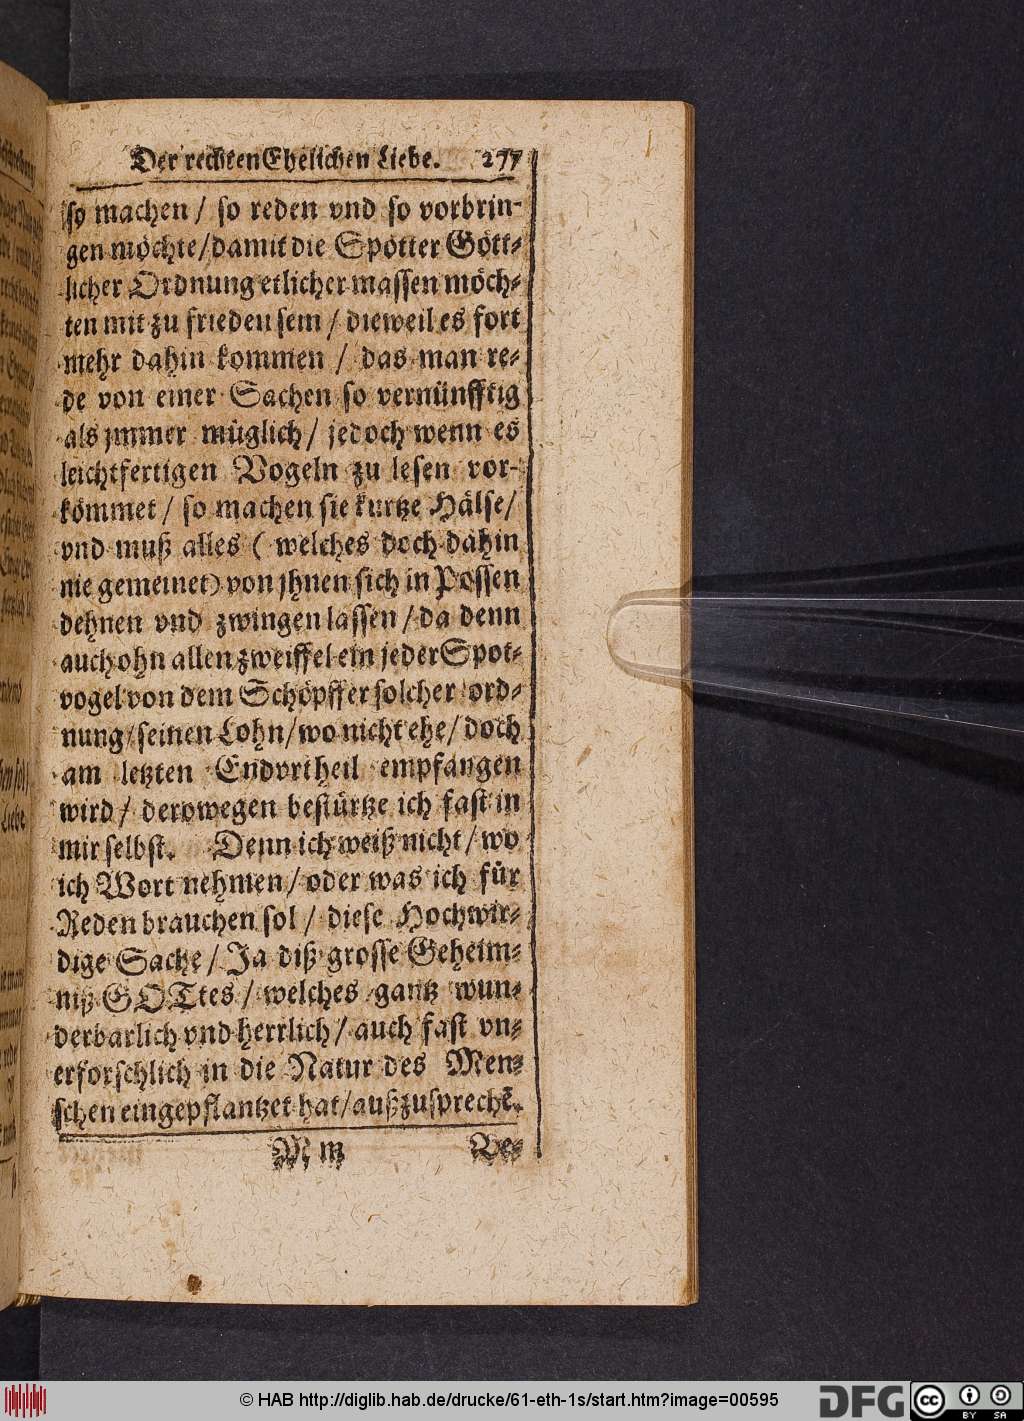 Der rechten Ehelichen Liebe. 277
so machen / so reden vnd so vorbrin-
gen möchte / damit die Spötter Gött-
licher Ordnung etlicher massen möch-
ten mit zu frieden sein / dieweil es fort
mehr dahin kommen / das man re-
de von einer Sachen so vernünfftig
als jmmer müglich / jedoch wenn es
leichtfertigen Vogeln zu lesen vor-
kömmet / so machen sie kurtze Hälse /
vnd muß alles ( welches doch dahin
nie gemeinet ) von jhnen sich in Possen
dehnen vnd zwingen lassen / da denn
auch ohn allen zweiffel ein jeder Spot-
vogel von dem Schöpffer solcher ord-
nung / seinen Lohn / wo nicht ehe / doch
am letzten Endvrtheil empfangen
wird / derowegen bestürtze ich fast in
mir selbst. Denn ich weiß nicht / wo
ich Wort nehmen / oder was ich für
Reden brauchen sol / diese Hochwir-
dige Sache / Ja diß grosse Geheim-
niß GOTtes / welches gantz wun-
derbarlich vnd herrlich / auch fast vn-
erforschlich in die Natur des Men-
schen eingepflantzet hat / außzusprechē.
M m Ve-
© HAB http://diglib.hab.de/drucke/61-eth-1s/start.htm?image=00595
DFG
cc BY SA